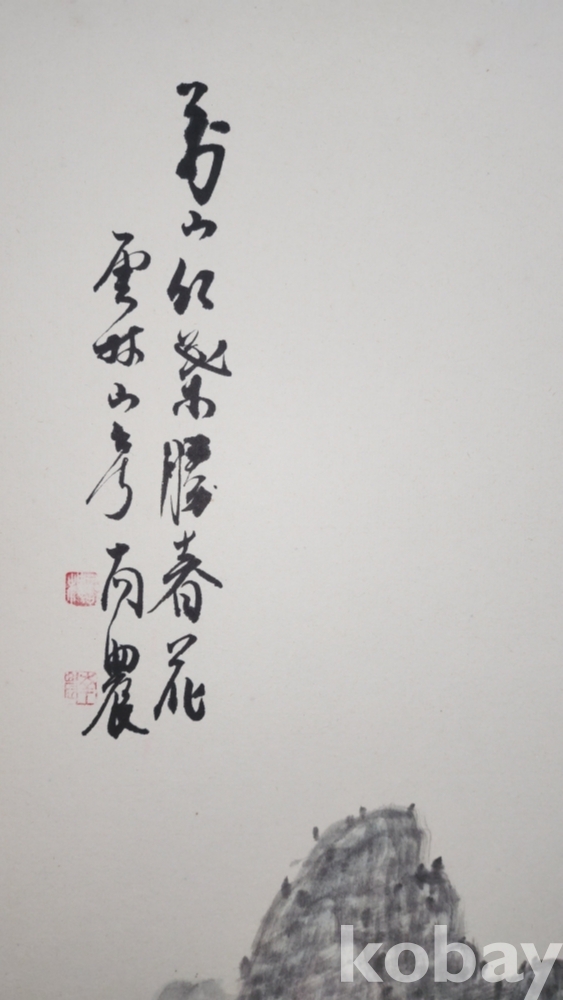 萬山紅葉勝春花
雲林山房 丙農
kobay